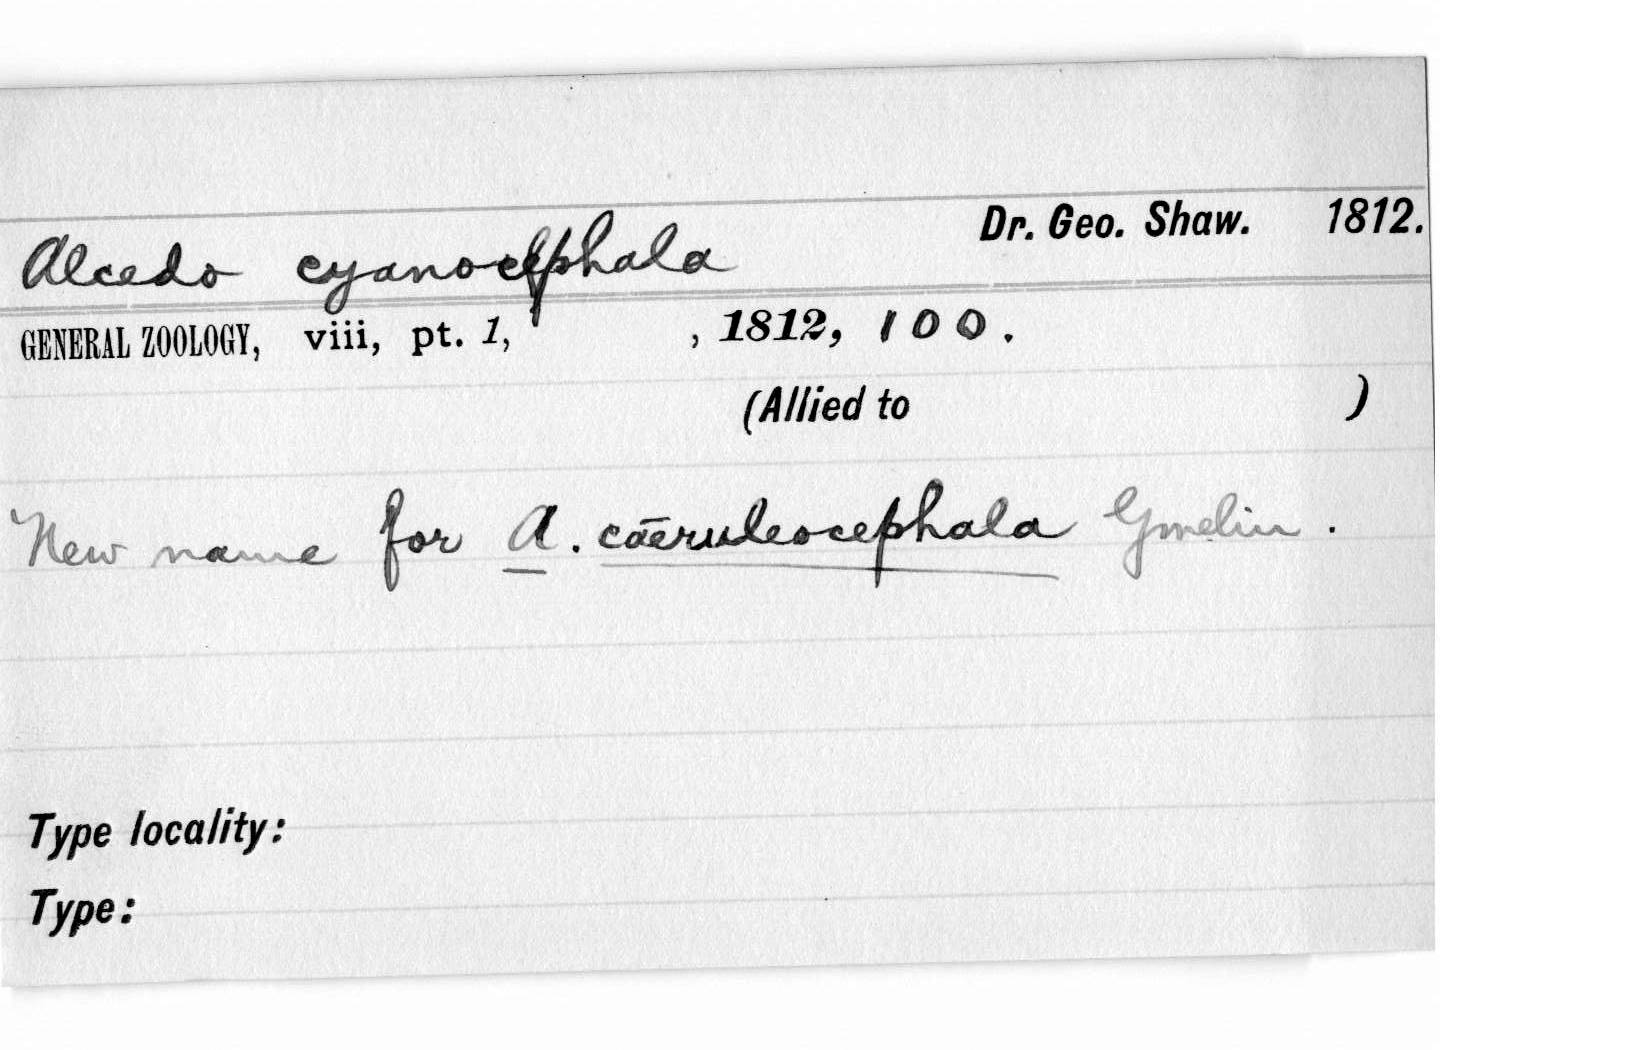 Alcedo cyanocephala Dr. Geo. Shaw. 1812.
GENERAL ZOOLOGY, viii, pt. 1, , 1812, 100.
(Allied to )
New name for A. cāeruleocephala Gmelin.
Type locality:
Type: